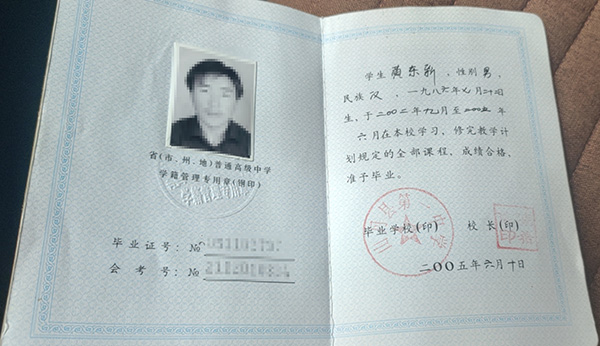 省(市、州、地)普通高级中学
学籍管理专用章(钢印)
毕业证号：№
会考号：№
学生 黄东新 ，性别 男 ，
民族 汉 ，一九八六年七月二十
生，于二〇〇二年九月至二〇〇五年
六月在本校学习，修完教学计
划规定的全部课程，成绩合格，
准予毕业。
毕业学校(印) 校长(印)
二〇〇五年六月十日